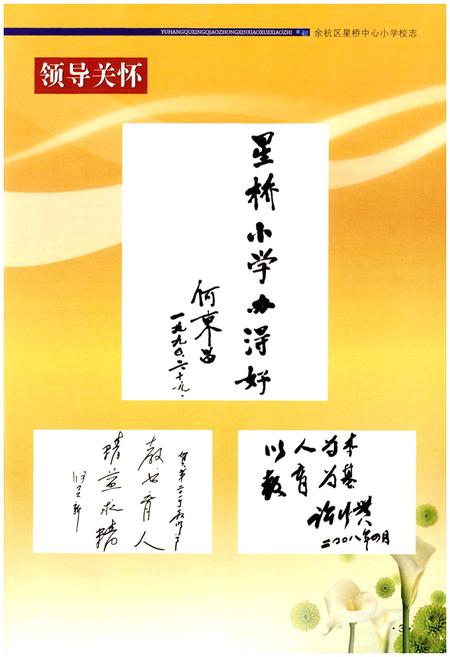 YUHANGQUXINGQIAOZHONGXINXIAOXUEXIAOZHI
余杭区星桥中心小学校志
领导关怀
星桥小学办得好
何东昌
一九九〇.六.十九.
教书育人
精益求精
以人为本
教育为基
二〇〇八年四月
·3·